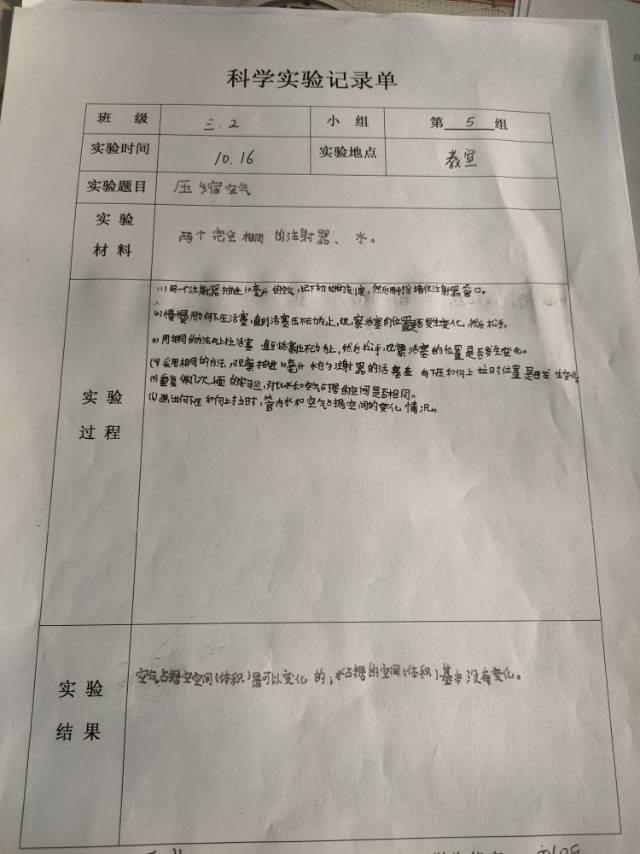 科学实验记录单
班 级 三.2 小 组 第 5 组
实验时间 10.16 实验地点 教室
实验题目 压缩空气
实 验 材 料 两个完全相同的注射器、水。
实 验 过 程
(1)用一个注射器抽进10毫升的空气,记下初始的刻度,然后用手指堵住注射器管口。
(2)慢慢用力向下压活塞,直到活塞压不动为止,观察活塞的位置是否发生变化,然后松手。
(3)用相同的方法向上拉活塞 直到活塞拉不动为止,然后松手,观察活塞的位置是否发生变化。
(4)采用相同的方法,观察抽进10毫升水的注射器的活塞在 向下压和向上拉时位置是否发生变化
(5)重复做几次上面的实验,对比水和空气占据的空间是否相同。
(6)画出向下压和向上拉时,管内水和空气占据空间的变化情况。
实 验 结 果
空气占据空空间(体积)是可以变化的;水占据的空间(体积)基本没有变化。